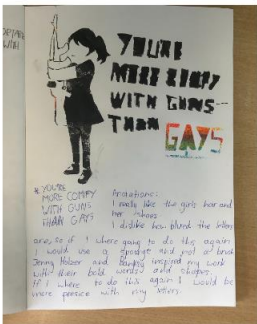 OPTARE
WITH
YOU'RE
MORE COMFY
WITH GUNS
THAN GAYS
* YOU'RE
MORE COMFY
WITH GUNS
THAN GAYS
Anotations:
I really like the girls hair and
her shoes
I dislike how blurd the letters
are, so if I where going to do this again
I would use a sponge and not a brush
Jenny Holzer and Banksy inspired my work
with their bold words and shapes.
If I where to do this again I would be
more precice with my letters.